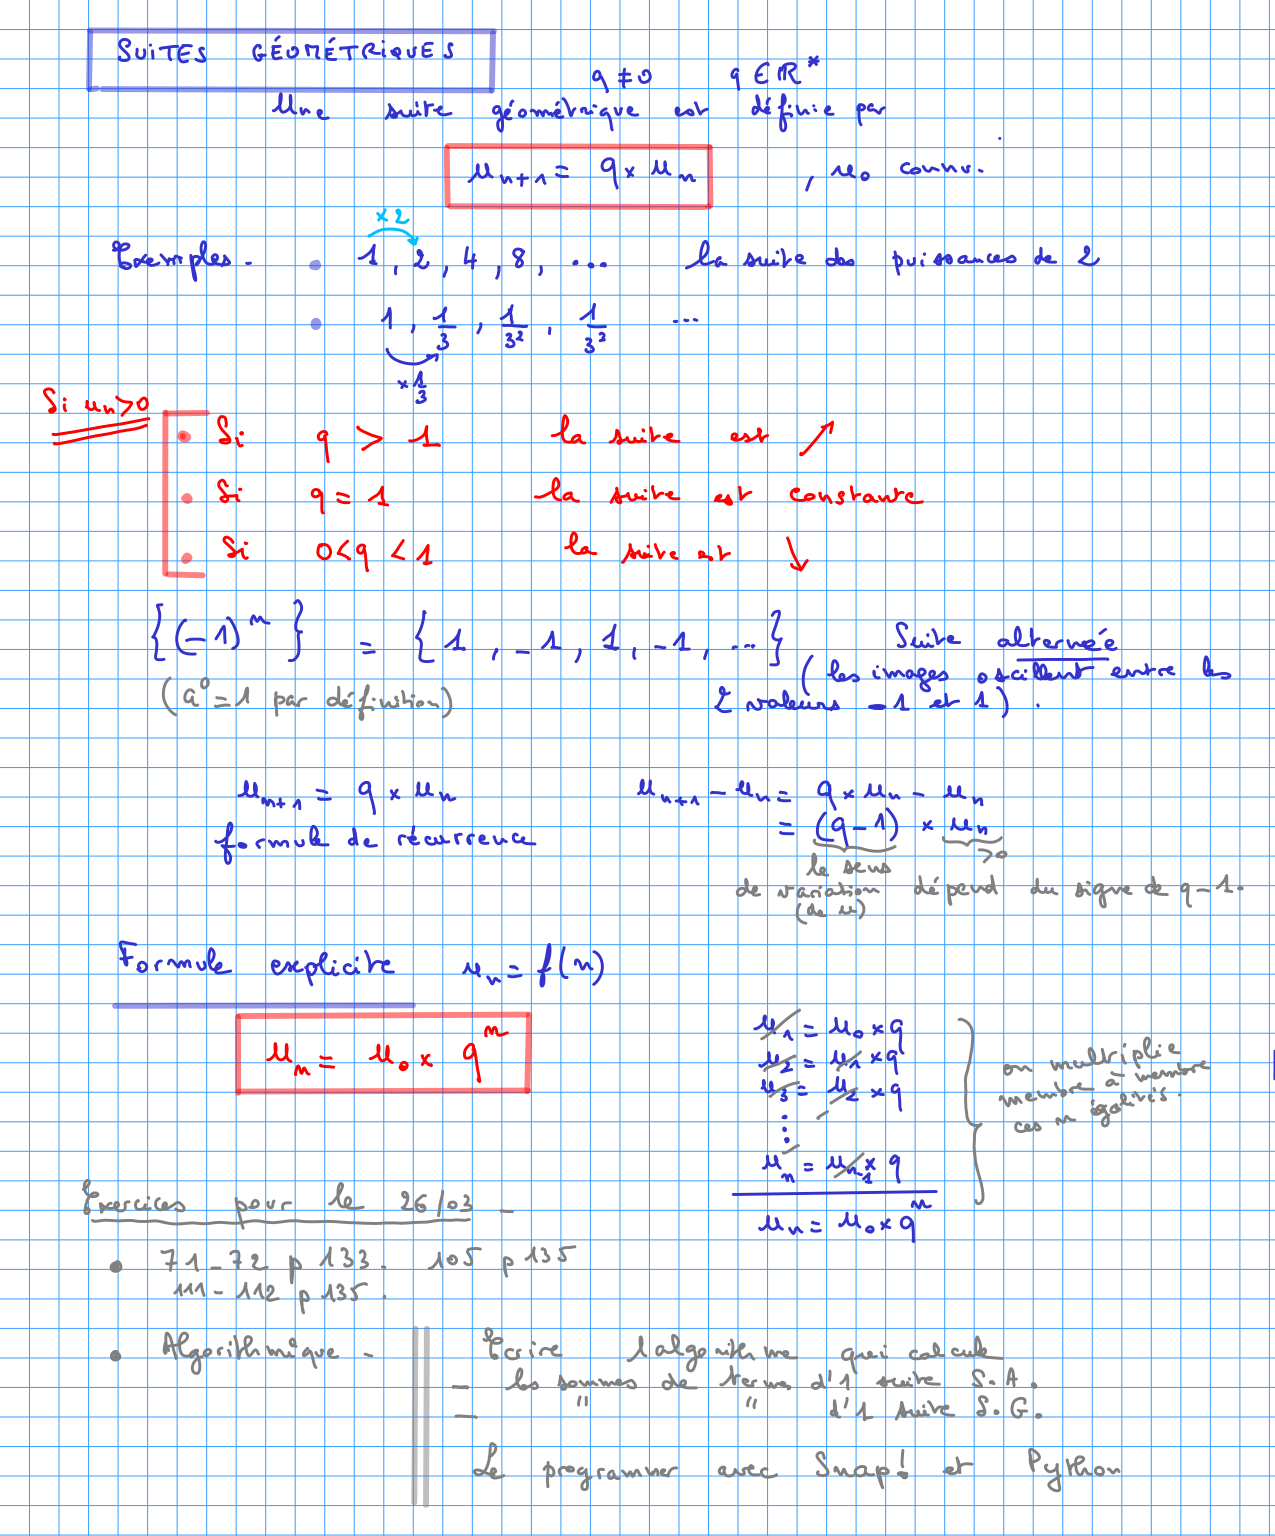 SUITES GÉOMÉTRIQUES
q ≠ 0 q ∈ ℝ*
Une suite géométrique est définie par
u_{n+1} = q × u_n , u_0 connu.
×2
Exemples. • 1, 2, 4, 8, ... la suite des puissances de 2
• 1, 1/3, 1/3², 1/3² ...
×1/3
Si u_n > 0
• Si q > 1 la suite est ↗
• Si q = 1 la suite est constante
• Si 0 < q < 1 la suite est ↘
{(-1)^n} = {1, -1, 1, -1, ...} Suite alternée
(les images oscillent entre les
2 valeurs -1 et 1).
(a^0 = 1 par définition)
u_{n+1} = q × u_n
formule de récurrence
u_{n+1} - u_n = q × u_n - u_n
= (q-1) × u_n
>0
le sens
de variation dépend du signe de q-1.
(de u)
Formule explicite u_n = f(n)
u_n = u_0 × q^n
u_1 = u_0 × q
u_2 = u_1 × q
u_3 = u_2 × q
⋮
u_n = u_{n-1} × q
u_n = u_0 × q^n
on multiplie
membre à membre
ces n égalités.
Exercices pour le 26/03 -
• 71-72 p 133. 105 p 135
111-112 p 135.
• Algorithmique -
Ecrire l'algorithme qui calcule
- les sommes de termes d'1 suite S.A.
- " " d'1 suite S.G.
Le programmer avec Snap! et Python